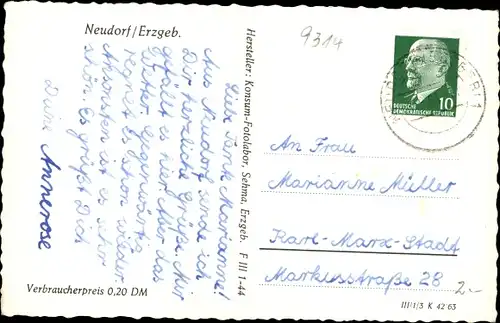 Neudorf/Erzgeb.
9314
Liebe Tante Marianne!
Aus Neudorf sende ich
Dir herzliche Grüße. Mir
gefällt es hier. Nur das
Wetter.
regnet es schon wieder.
Ansonsten ist es sehr
schön. es grüßt Dich
Deine Annerose
Verbraucherpreis 0,20 DM
Hersteller: Konsum-Fotolabor, Sehma, Erzgeb. F III 1-44
10
DEUTSCHE
DEMOKRATISCHE REPUBLIK
An Frau
Marianne Müller
Karl-Marx-Stadt
Markusstraße 28
2.-
III/1/3 K 42/63